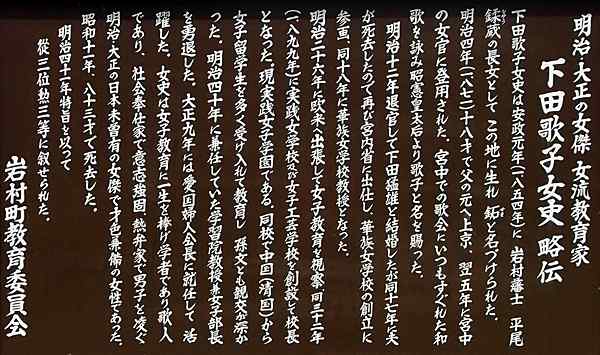 明治・大正の女傑・女流教育家
下田歌子女史 略伝
下田歌子女史は安政元年(一八五四年)に 岩村藩士 平尾
鍒蔵の長女として この地に生れ 鉐と名づけられた。
明治四年(一八七一)十八才で父の元へ上京、翌五年に宮中
の女官に登用された。宮中での歌会にいつもすぐれた和
歌を詠み昭憲皇太后より歌子と名を賜った。
明治十二年退官して下田猛雄と結婚したが同十七年に夫
が死去したので再び宮内省に出仕し、華族女学校の創立に
参画、同十八年に華族女学校教授となった。
明治二十六年に欧米へ出張して女子教育を視察、同三十二年
(一八九九年)に実践女学校及び女子工芸学校を創設して校長
となった。現実践女子学園である。同校で中国(清国)から
女子留学生を多く受け入れて教育し 孫文とも親交が深か
った。明治四十年に兼任していた学習院教授兼女子部長
を勇退した。大正九年には愛国婦人会長に就任して 活
躍した。女史は女子教育に一生を捧げ学者であり歌人
であり、社会奉仕家で意志強固 熱弁家で男子を凌ぐ
明治・大正の日本未曽有の女傑で才色兼備の女性であった。
昭和十一年、八十三才で死去した。
明治四十一年特旨を以って
従三位勲三等に叙せられた。
岩村町教育委員会